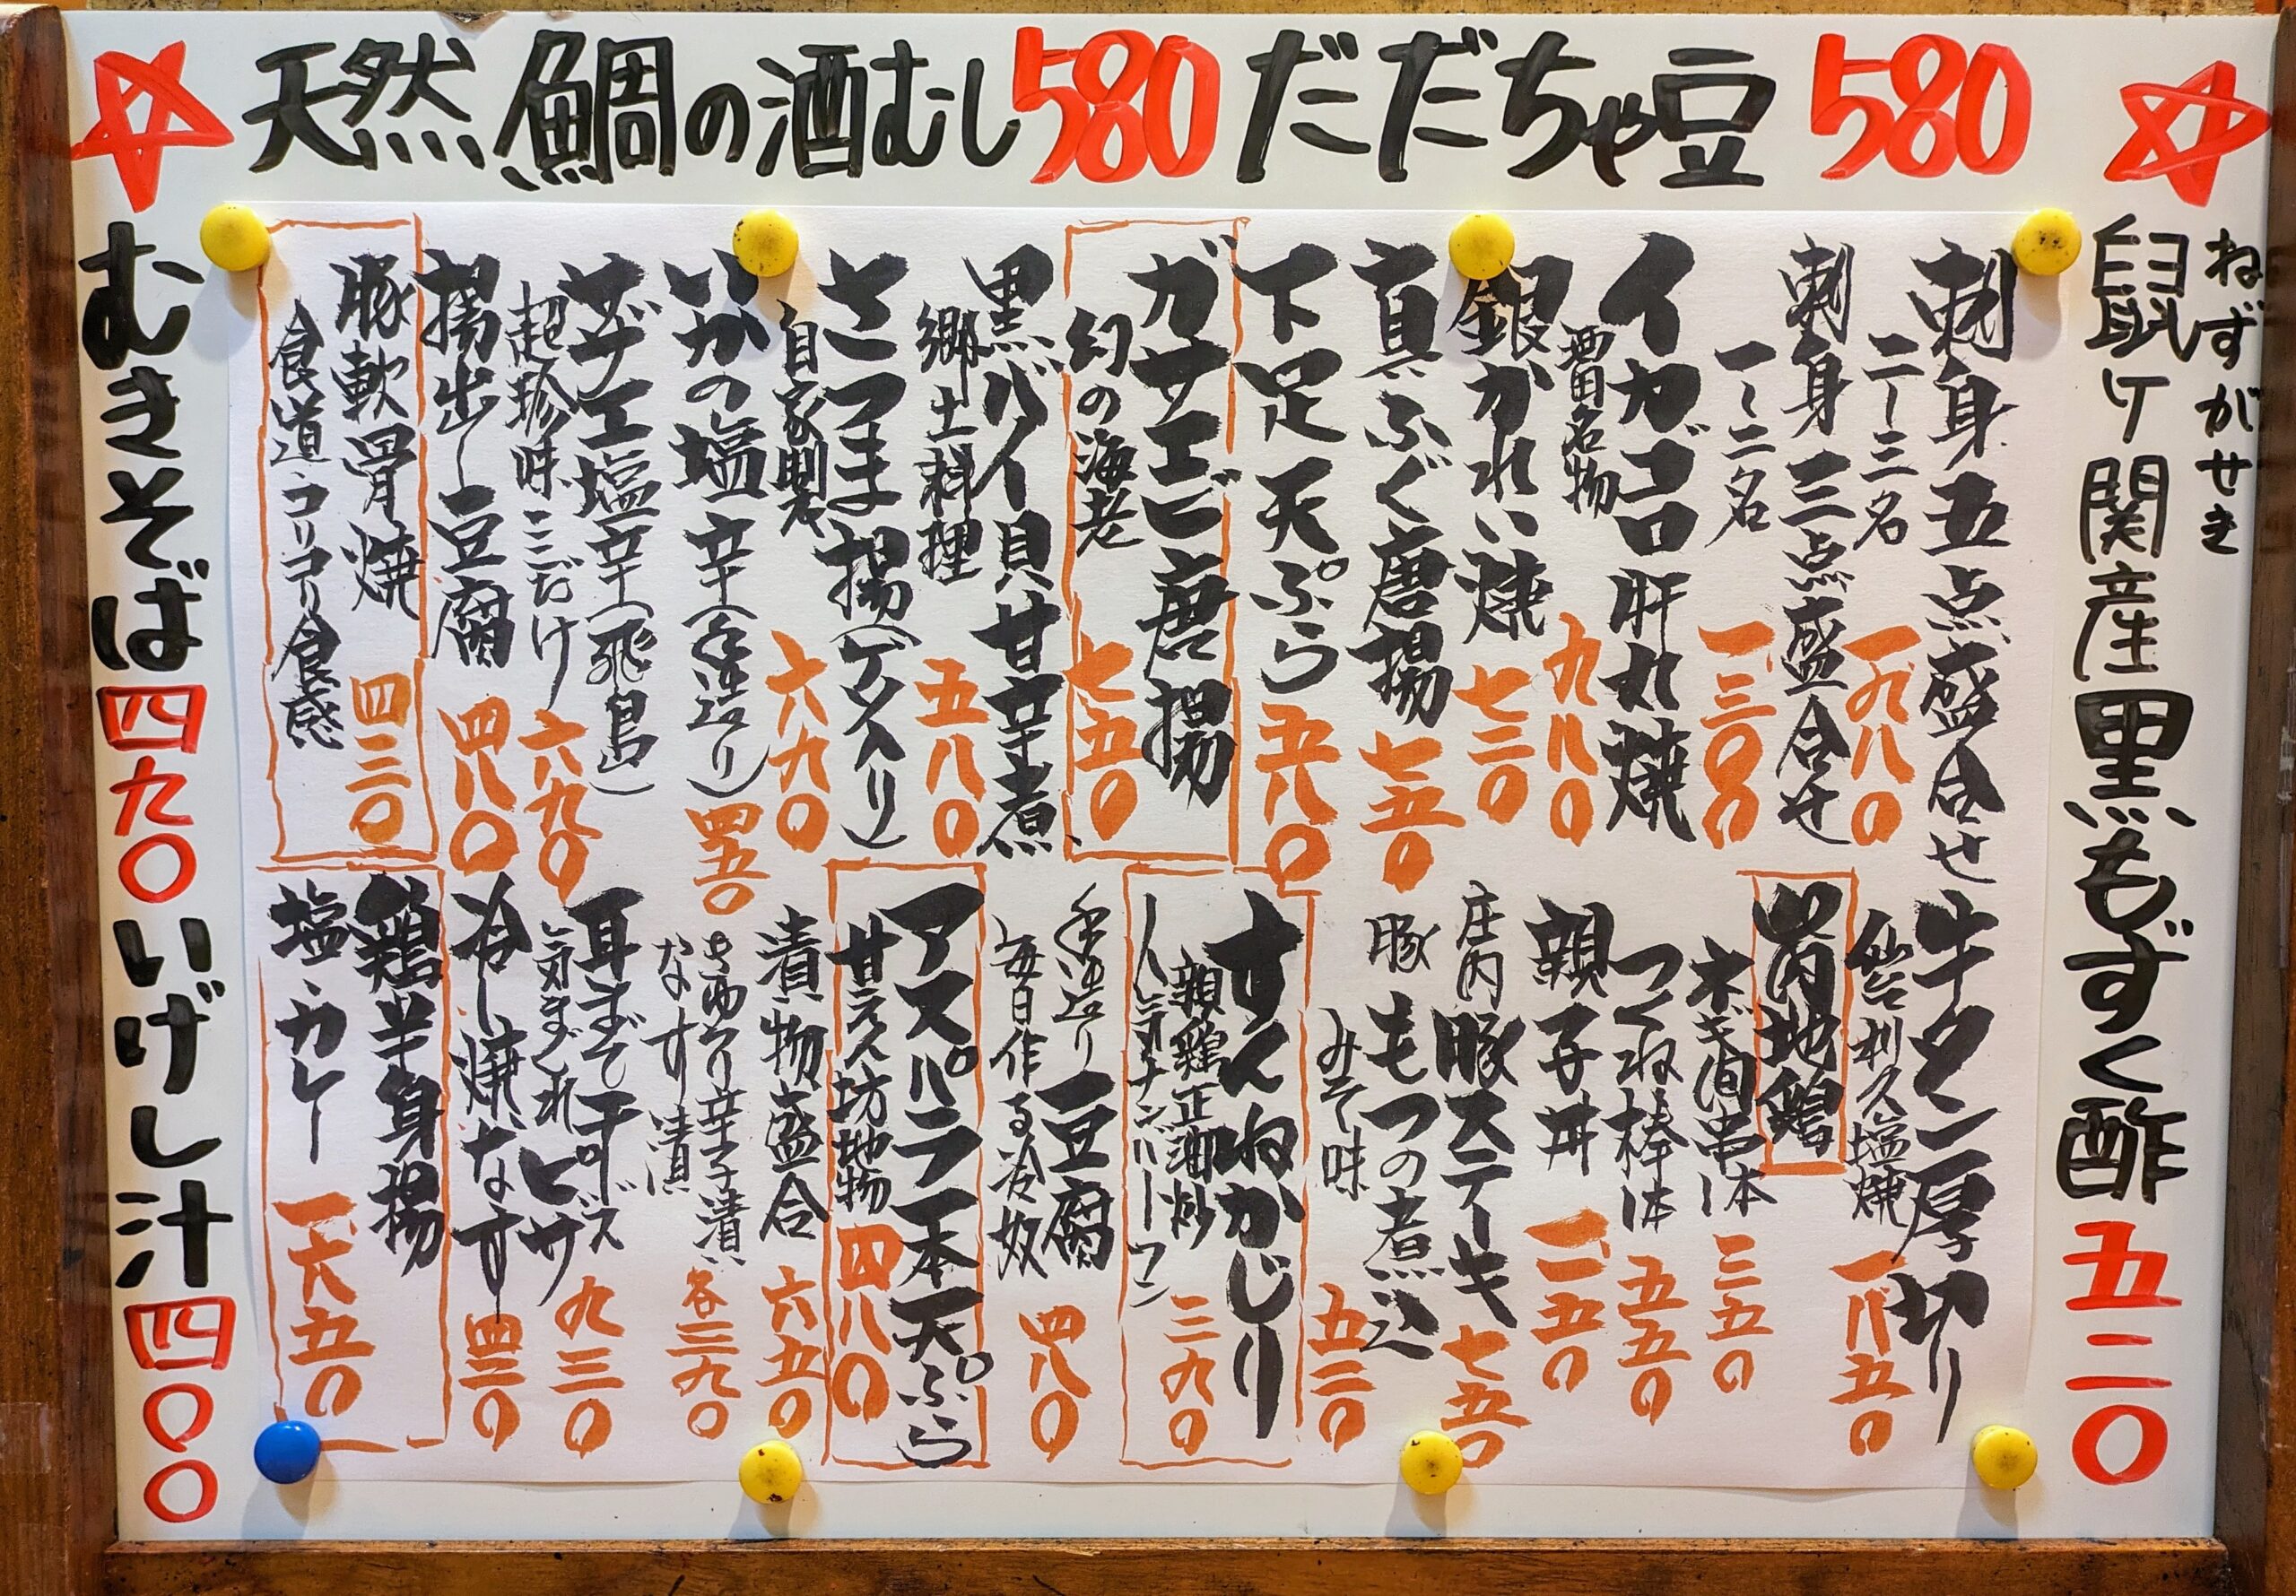 天然鯛の酒むし580 だだちゃ豆 580
ねずがせき
鼠ヶ関産黒もずく酢 五二〇
刺身五点盛合せ
二〜三名 一九八〇
刺身三点盛合せ
一〜二名 一三〇〇
イカゴロ肝丸焼
酒田名物 九八〇
銀かれい焼 七三〇
真ふぐ唐揚 七五〇
下足天ぷら 五八〇
ガサエビ唐揚
幻の海老 七五〇
黒バイ貝甘辛煮
郷土料理 五八〇
さつま揚(ゲソ入り)
自家製 六九〇
いかの塩辛(手造り) 四五〇
サザエ塩辛(飛島)
超珍味 三だけ 六九〇
揚出し豆腐 四八〇
豚軟骨焼 四三〇
食道・コリコリ食感
牛タン厚切り
仙台利久塩焼 一八五〇
庄内地鶏
ネギ間串一本 三五〇
つくね棒一本 五五〇
親子丼 一一五〇
庄内豚ステーキ 七五〇
豚もつの煮込
みそ味 五三〇
すんねかじり
親鶏正油炒
人気ナンバーワン 三九〇
手造り豆腐
毎日作る冷奴 四八〇
アスパラ一本天ぷら
甘えん坊地物 四八〇
漬物盛合 六五〇
きゅうり辛子漬
なす漬 各三九〇
耳までチーズ
気まぐれピザ 九三〇
冷し焼なす 四三〇
鶏半身揚
塩・カレー 一六五〇
むきそば 四九〇 いげし汁 四〇〇